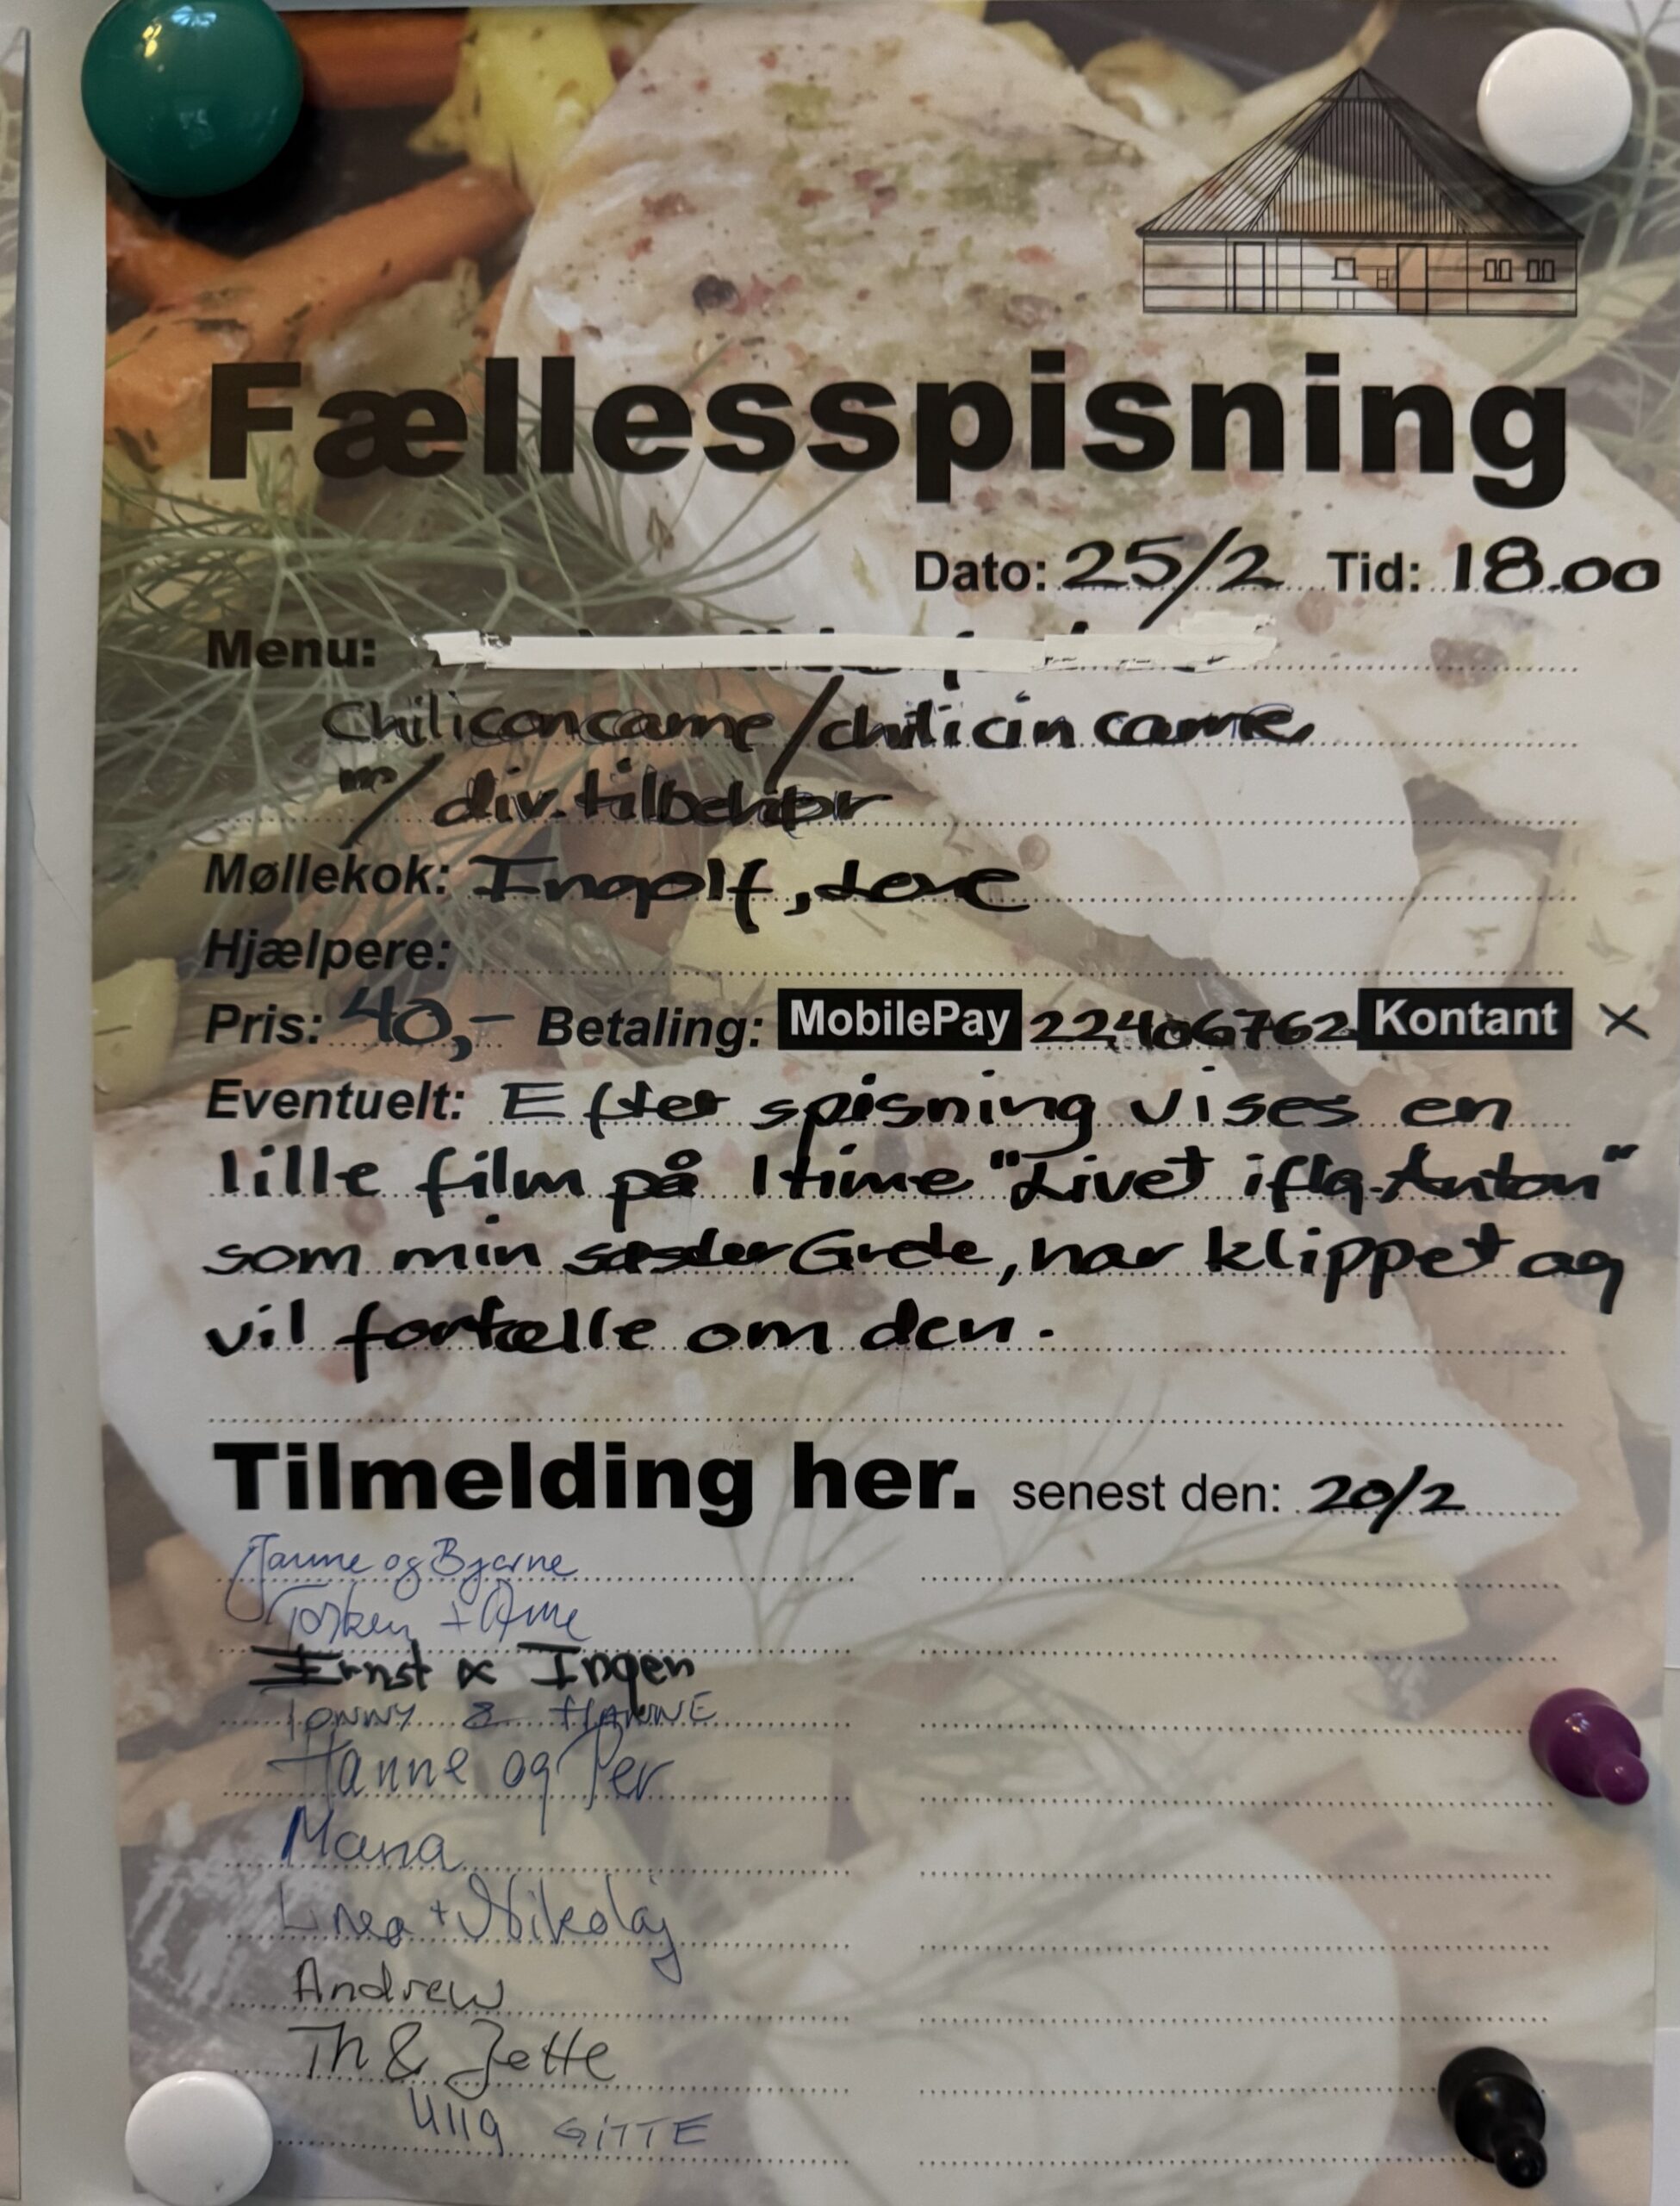 Fællesspisning
Dato: 25/2 Tid: 18.00
Menu:
Chiliconcarne/chilicin carne
m/ div. tilbehør
Møllekok: Ingolf, Lone
Hjælpere:
Pris: 40,- Betaling: MobilePay 22406762 Kontant X
Eventuelt: Efter spisning vises en
lille film på 1 time "Livet iflg. Anton"
som min søster Grete, har klippet og
vil fortælle om den.
Tilmelding her. senest den: 20/2
og Bjarne
Ernst & Ingen
TONNY & HANNE
Hanne og Per
Maria
Linea + Nikolaj
Andrew
Th & Jette
Ulla GITTE